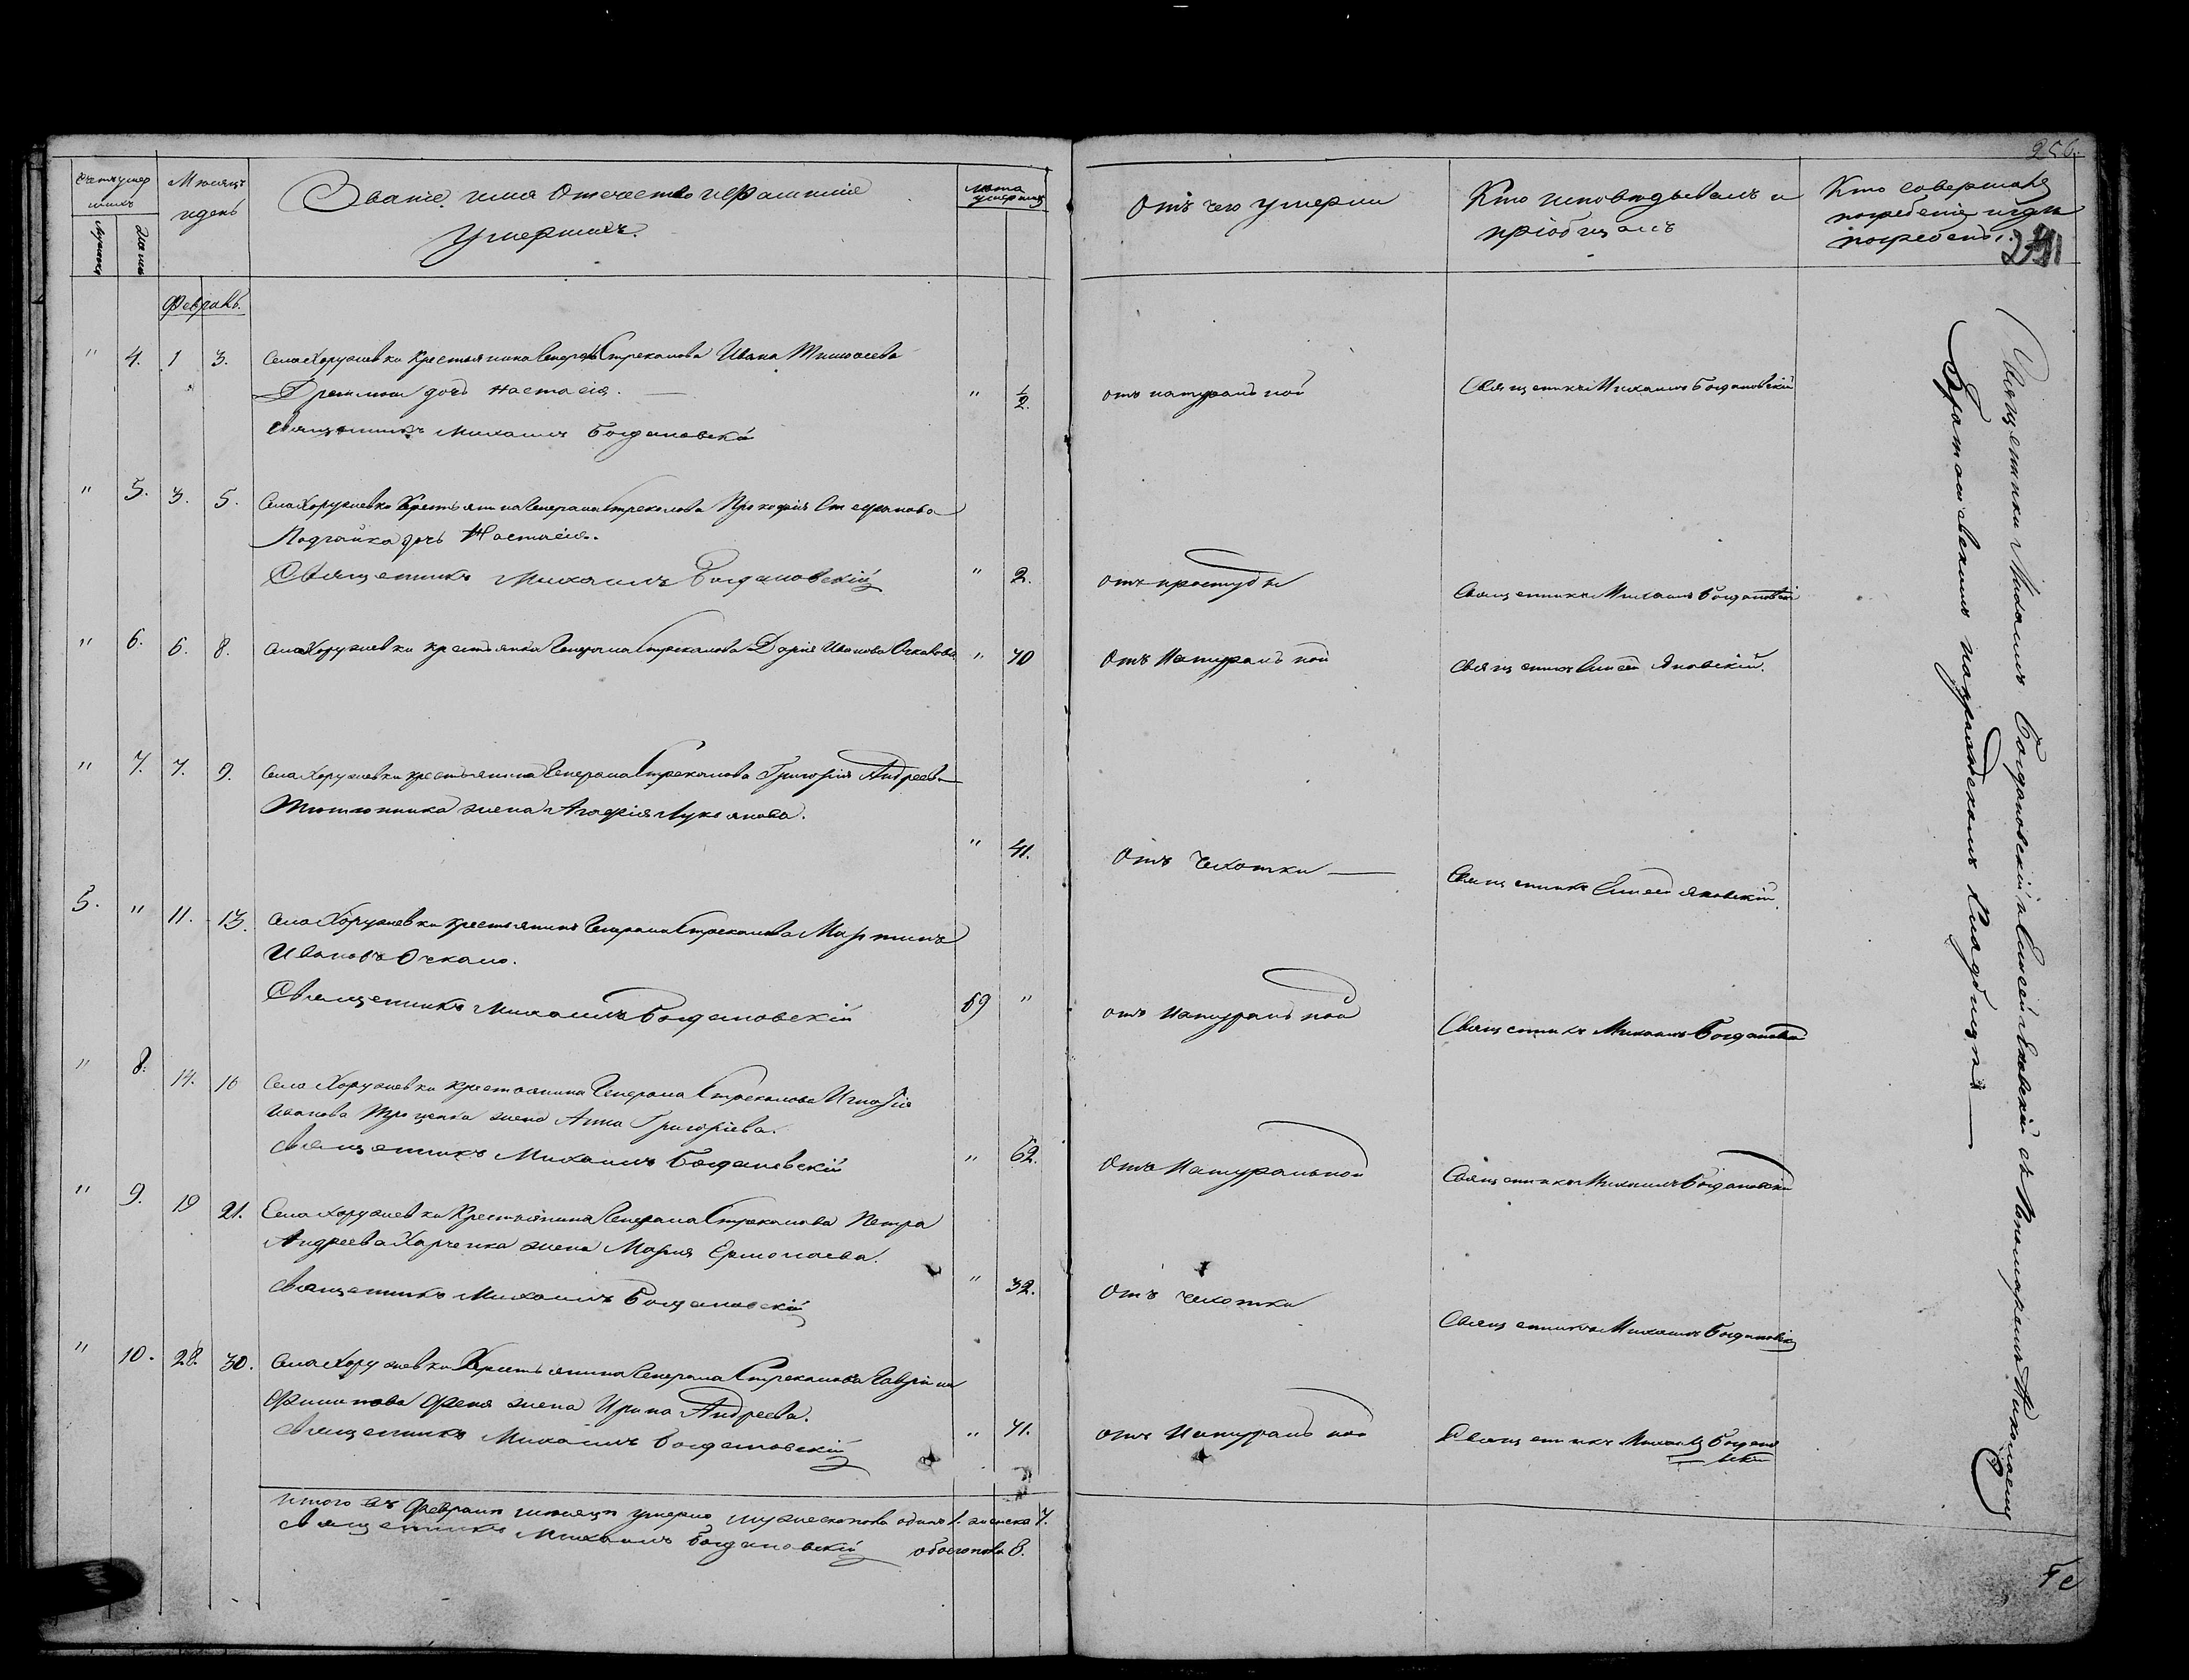 256.
Счетъ умершихъ
Мѣсяцъ и день
Званіе, имя Отечество и фамиліе
Умершихъ.
лѣта умершихъ
Отъ чего умерли
Кто исповѣдывалъ и
пріобщалъ
Кто совершалъ
погребеніе и гдѣ
погребены.
Февраль.
" 4. 1 3. Села Хоружевки Крестьянина Генерала Стрекалова Ивана Тимофеева
дочь Настасія. " ½. отъ натуральной Священникъ Михаилъ Богдановскій
Священникъ Михаилъ Богдановскій
" 5. 3. 5. Села Хоружевки Крестьянина Генерала Стрекалова Прокофія Стефанова
Подгайка дочь Настасія.
Священникъ Михаилъ Богдановскій " 2. отъ простуды Священникъ Михаилъ Богдановскій
" 6. 6. 8. Села Хоружевки крестьянка Генерала Стрекалова Дарія Иванова Очкасова " 70 Отъ Натуральной Священникъ Елисей Яновскій.
" 7. 7. 9. Села Хоружевки крестьянина Генерала Стрекалова Григорія Андреева
Тютюнника жена Агафія Лукьянова.
" 41. Отъ чахотки Священникъ Елисей Яновскій.
5. " 11. 13. Села Хоружевки крестьянинъ Генерала Стрекалова Мартинъ
Ивановъ Очкась.
Священникъ Михаилъ Богдановскій 69 " отъ Натуральной Священникъ Михаилъ Богдановскій
" 8. 14. 16 Села Хоружевки крестьянина Генерала Стрекалова Игнатія
Иванова Троценка жена Анна Григоріева.
Священникъ Михаилъ Богдановскій " 62. Отъ Натуральной Священникъ Михаилъ Богдановскій
" 9. 19 21. Села Хоружевки Крестьянина Генерала Стрекалова Петра
Андреева Харченка жена Марія Ермолаева.
Священникъ Михаилъ Богдановскій " 32. Отъ чахотки Священникъ Михаилъ Богдановскій
" 10. 28. 30. Села Хоружевки Крестьянина Генерала Стрекалова Гавріила
Филипова жена Ирина Андреева.
Священникъ Михаилъ Богдановскій " 41. отъ Натуральной Священникъ Михаилъ Богдановскій
Итого въ Февралѣ мѣсяцѣ умерло мужеска пола одинъ 1. женска 7.
Священникъ Михаилъ Богдановскій обоего пола 8.
Священники Михаилъ Богдановскій и Елисей Яновскій съ Пономаремъ Николаемъ
на приходскомъ кладбищѣ